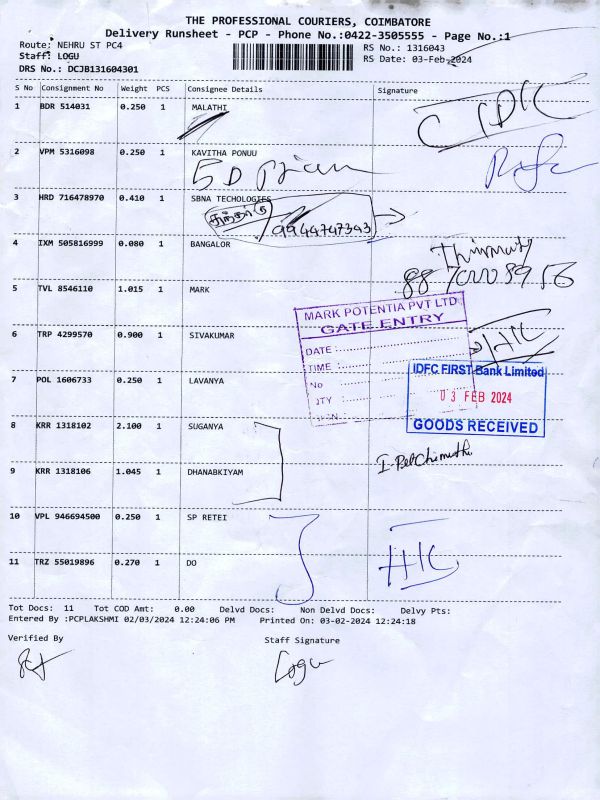 THE PROFESSIONAL COURIERS, COIMBATORE
Delivery Runsheet - PCP - Phone No.:0422-3505555 - Page No.:1
Route: NEHRU ST PC4
RS No.: 1316043
Staff: LOGU
RS Date: 03-Feb-2024
DRS No.: DCJB131604301
S No Consignment No Weight PCS Consignee Details Signature
1 BDR 514031 0.250 1 MALATHI
2 VPM 5316098 0.250 1 KAVITHA PONUU
3 HRD 716478970 0.410 1 SBNA TECHOLOGIES
9944747393
4 IXM 505816999 0.080 1 BANGALOR
5 TVL 8546110 1.015 1 MARK
MARK POTENTIA PVT LTD
GATE ENTRY
DATE :
TIME :
No :
QTY :
6 TRP 4299570 0.900 1 SIVAKUMAR
H/C
7 POL 1606733 0.250 1 LAVANYA
IDFC FIRST Bank Limited
03 FEB 2024
GOODS RECEIVED
8 KRR 1318102 2.100 1 SUGANYA
9 KRR 1318106 1.045 1 DHANABKIYAM
10 VPL 946694500 0.250 1 SP RETEI
11 TRZ 55019896 0.270 1 DO
H/C
Tot Docs: 11 Tot COD Amt: 0.00 Delvd Docs: Non Delvd Docs: Delvy Pts:
Entered By :PCPLAKSHMI 02/03/2024 12:24:06 PM Printed On: 03-02-2024 12:24:18
Verified By Staff Signature
Logu